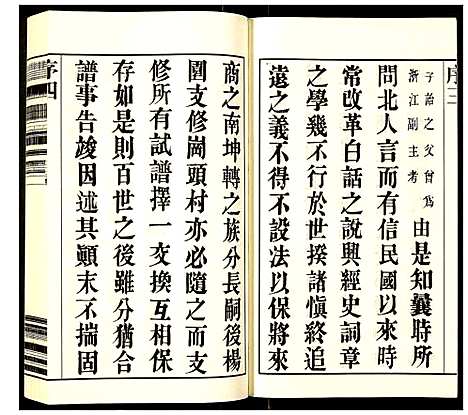 序三
子治之父曾爲
浙江副主考
由是知曩時所
問北人言而有信民國以來時
常改革白話之說興經史詞章
之學幾不行於世揆諸慎終追
遠之義不得不設法以保將來
商之南坤轉之族分長嗣後楊
圍支修崗頭村亦必隨之而支
修所有試譜擇一交換互相保
存如是則百世之後雖分猶合
譜事告竣因述其顚末不揣固
序四